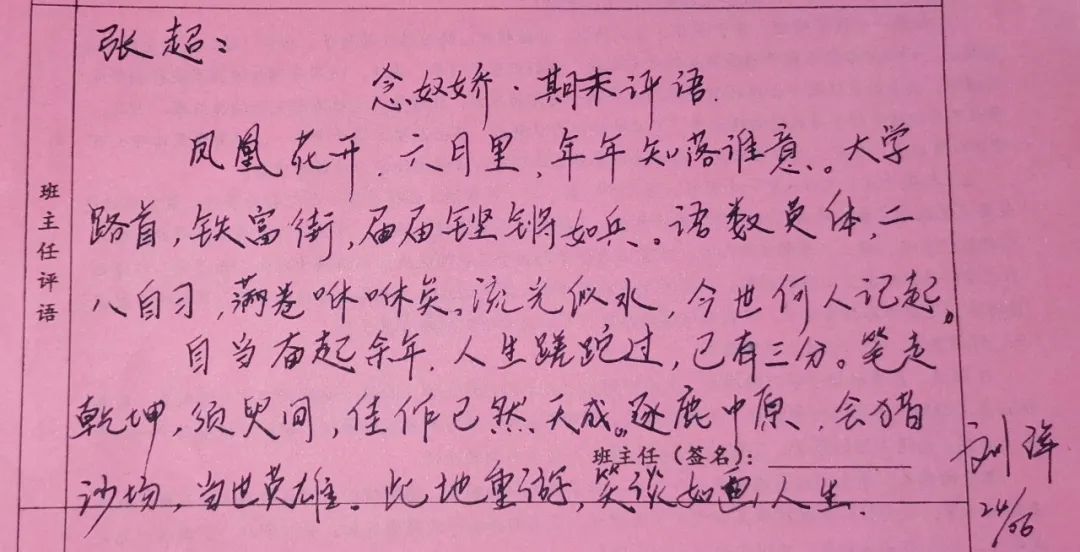 张超：
念奴娇·期末评语.
凤凰花开，六月里，年年知落谁意。大学
路首，铁富街，届届铿锵如兵。语数英体，二
八自习，满卷咻咻矣。流光似水，今世何人记起。
自当奋起余年，人生蹉跎过，已有三分。笔走
乾坤，须臾间，佳作已然天成。逐鹿中原，会猎
班主任（签名）：
沙场，当世英雄。此地重游，笑谈如画人生.
班主任评语
刘
24/06